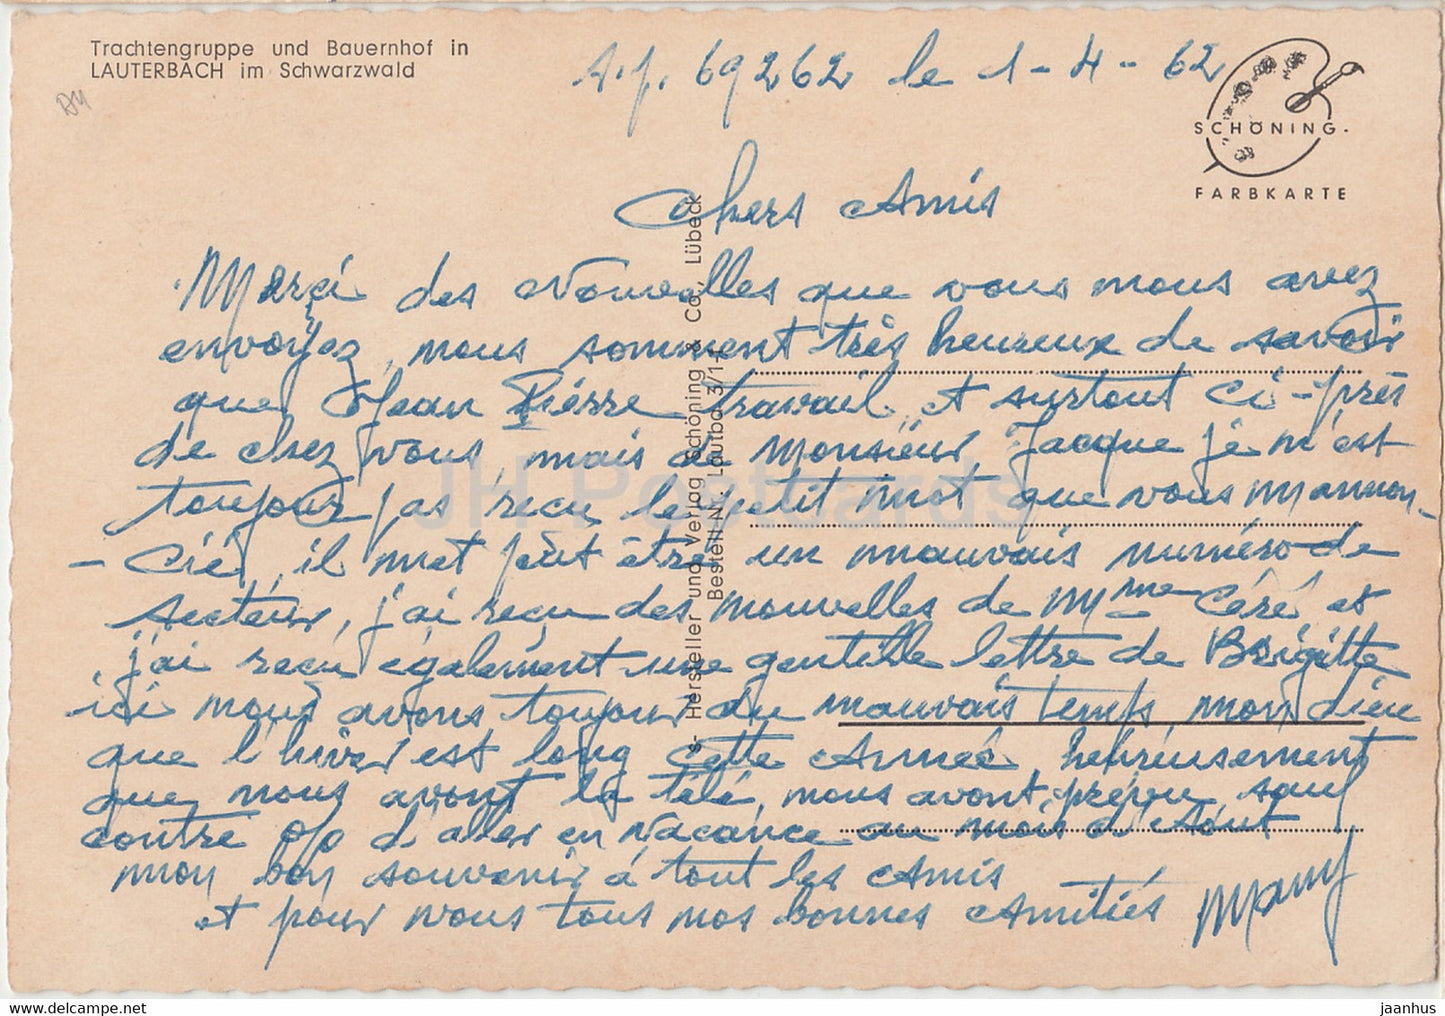 Trachtengruppe und Bauernhof in
LAUTERBACH im Schwarzwald
S.p. 69262 le 1-4-62
SCHÖNING-
FARBKARTE
Chers Amis
Merçi des Nouvelles que vous nous avez
envoyez, nous somment très heureux de savoir
que Jean Pierre travail, et surtout ci-près
de chez vous, mais de Monsieur Jacque je n'est
toujour pas recu le petit mot que vous m'annon-
-Cié, il met peut être un mauvais numéro de
secteur, j'ai reçu des nouvelles de Mme Céré et
j'ai recu également une gentille lettre de Brigitte
ici nous avons toujour du mauvais temps, mon dieu
que l'hiver est long cette Année, heureusement
que nous avont la télé, nous avont prévu sauf
contre o/o d'aller en vacance au mois d'Aout
mon bon souvenir à tout les Amis
et pour vous tous nos bonnes Amitiés Many
s- Hersteller und Verlag Schöning & Co., Lübeck
Bestell-Nr. Lautba 3/1-f
JH Postcards
www.delcampe.net
jaanhus